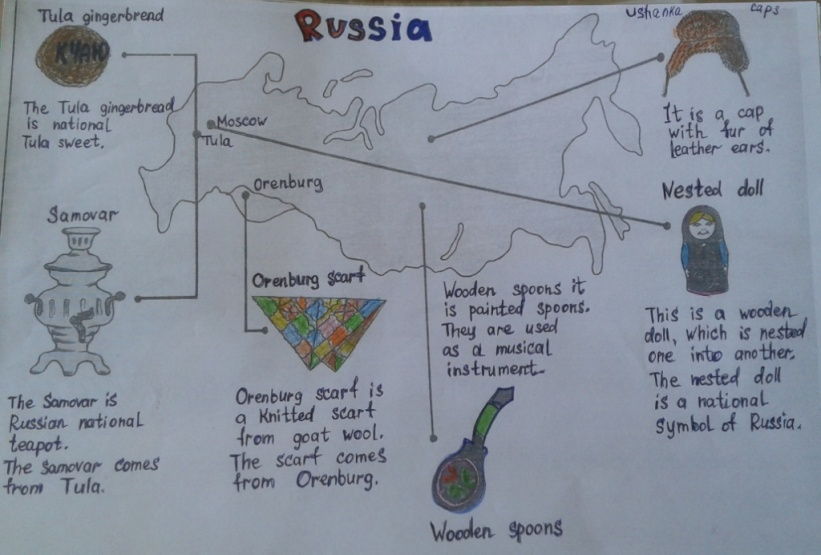 Russia
Tula gingerbread
The Tula gingerbread
is national
Tula sweet.
Samovar
The Samovar is
Russian national
teapot.
The Samovar comes
from Tula.
Moscow
Tula
Orenburg
Orenburg scarf
Orenburg scarf is
a Knitted scarf
from goat wool.
The scarf comes
from Orenburg.
Wooden spoons it
is painted spoons.
They are used
as a musical
instrument.
Wooden spoons
ushanka caps
It is a cap
with fur of
leather ears.
Nested doll
This is a wooden
doll, which is nested
one into another.
The nested doll
is a national
symbol of Russia.